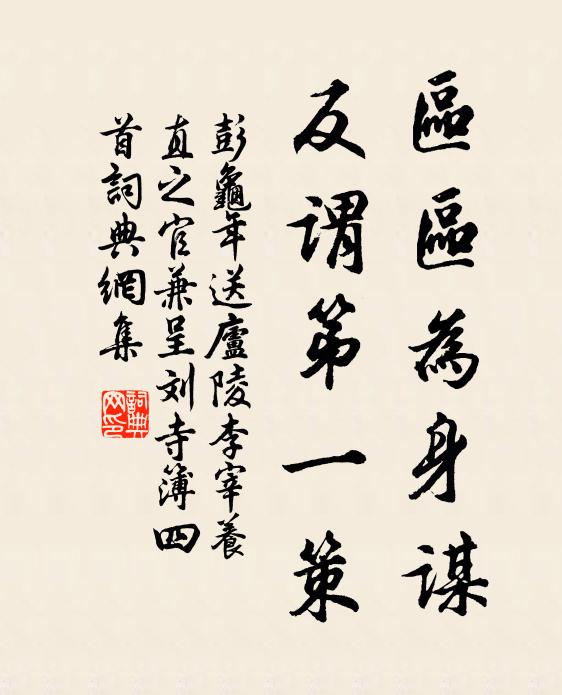 區區為身謀
反謂第一策
彭龜年送廬陵李宰養
直之官兼呈刘寺簿四
首詞典網集
詞典
网印